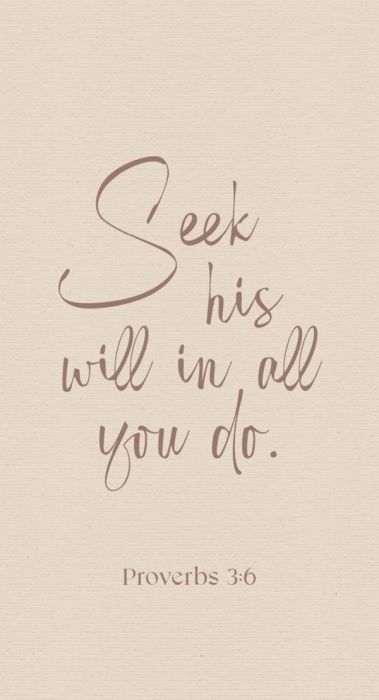 Seek
his
will in all
you do.
Proverbs 3:6